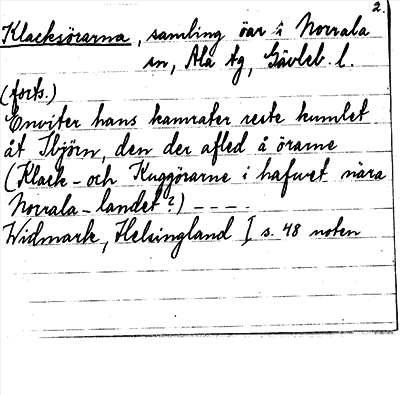 2.
Klacksörarna, samling öar i Norrala
sn, Ala tg, Gävleb. l.
(forts.)
Enviter hans kamrater reste kumlet
åt Sbjörn, den der afled å örarne
(Klack- och Kuggörarne i hafvet nära
Norrala-landet?) ----.
Widmark, Helsingland I s. 48 noten